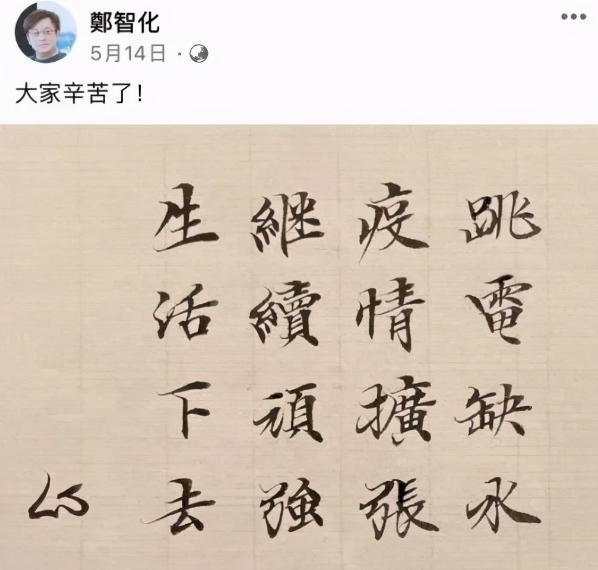 鄭智化
5月14日
大家辛苦了!
跳電缺水
疫情擴張
繼續頑強
生活下去